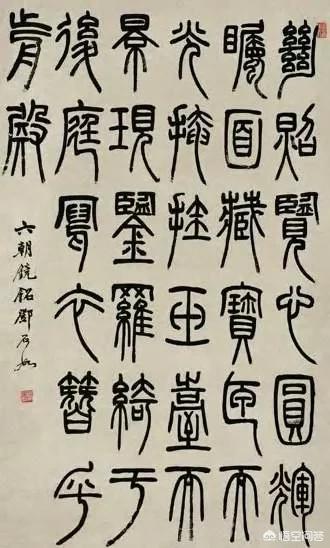 絕照覽心圓輝
矚面藏寶匣而
光掩挂玉臺而
景現鑒羅綺于
後庭寫衣簪乎
前殿
六朝鏡銘鄧石如
悟空问答